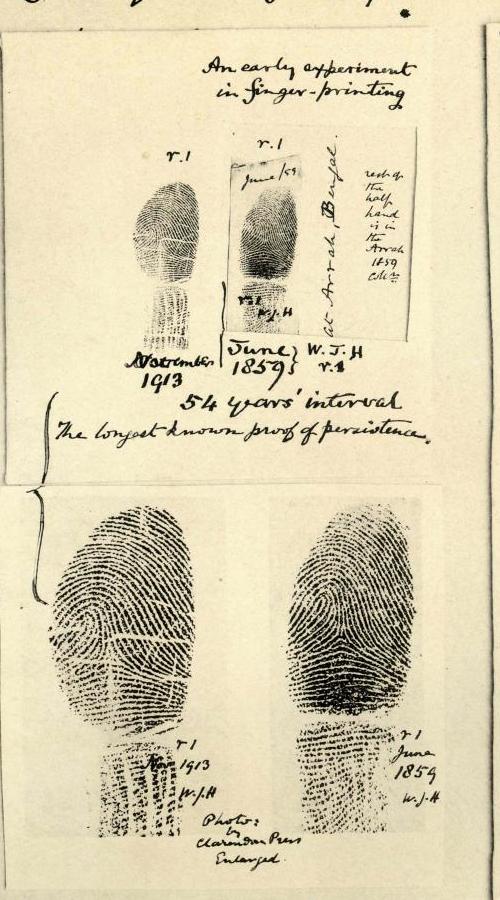 An early experiment
in finger-printing
r.1
r.1
June/59
at Arrah, Bengal.
rest of
the
half
hand
is in
the
Arrah
1859
r.1
W.J.H
November
1913
June
1859
W.J.H
r.1
54 years' interval
The longest known proof of persistence.
r 1
Nov 1913
W.J.H
r 1
June
1859
W.J.H
Photo:
by
Clarendon Press
Enlarged.